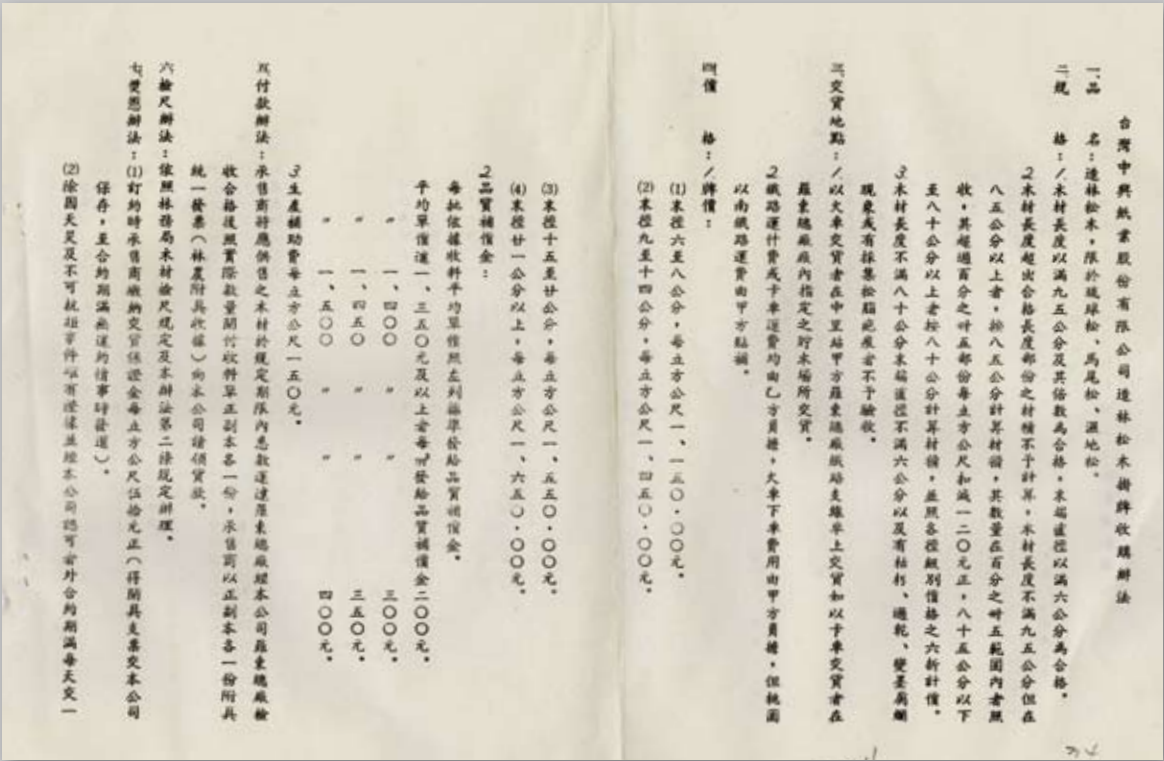 台灣中興紙業股份有限公司造林松木掛牌收購辦法
一、品　名：造林松木，限於琉球松、馬尾松、濕地松。
二、規　格：1.木材長度以滿九五公分及其倍數為合格，末端直徑以滿六公分為合格。
2.木材長度超出合格長度部份之材積不予計算，木材長度不滿九五公分但在
八五公分以上者，按八五公分計算材積，其數量在百分之卅五範圍內者照
收，其超過百分之卅五部份每立方公尺扣減一二〇元正，八十五公分以下
至八十公分以上者按八十公分計算材積，並照各徑級別價格之六折計價。
3.木材長度不滿八十公分末端直徑不滿六公分以及有枯朽、過乾、變墨腐爛
現象或有採集松脂疤痕者不予驗收。
三、交貨地點：1.以火車交貨者在中里站甲方羅東總廠鐵路支線車上交貨如以卡車交貨者在
羅東總廠廠內指定之貯木場所交貨。
2.鐵路運什費或卡車運費均由乙方負擔，火車下車費用由甲方負擔，但桃園
以南鐵路運費由甲方點補。
四、價　格：1.牌價：
(1)末徑六至八公分，每立方公尺一、一五〇・〇〇元。
(2)末徑九至十四公分，每立方公尺一、四五〇・〇〇元。
(3)末徑十五至廿公分，每立方公尺一、五五〇・〇〇元。
(4)末徑廿一公分以上，每立方公尺一、六五〇・〇〇元。
2.品質補償金：
每批依據收料平均單價照左列標準發給品質補償金。
平均單價達一、三五〇元及以上者每㎥發給品質補償金二〇〇元。
〃　一、四〇〇　〃　〃　三〇〇元。
〃　一、四五〇　〃　〃　三五〇元。
〃　一、五〇〇　〃　〃　四〇〇元。
3.生產補助費每立方公尺一五〇元。
五、付款辦法：承售商將應供售之木材於規定期限內悉數運達羅東總廠經本公司羅東總廠檢
收合格後照實際數量開付收料單正副本各一份，承售商以正副本各一份附具
統一發票（林農附具收據）向本公司請領貨款。
六、檢尺辦法：依照林務局木材檢尺規定及本辦法第二條規定辦理。
七、獎懲辦法：(1)訂約時承售商繳納交貨保證金每立方公尺伍拾元正（得開具支票交本公司
保存，至合約期滿無違約情事時發還）。
(2)除因天災及不可抗拒事件確有證據並經本公司認可者外合約期滿每天交一